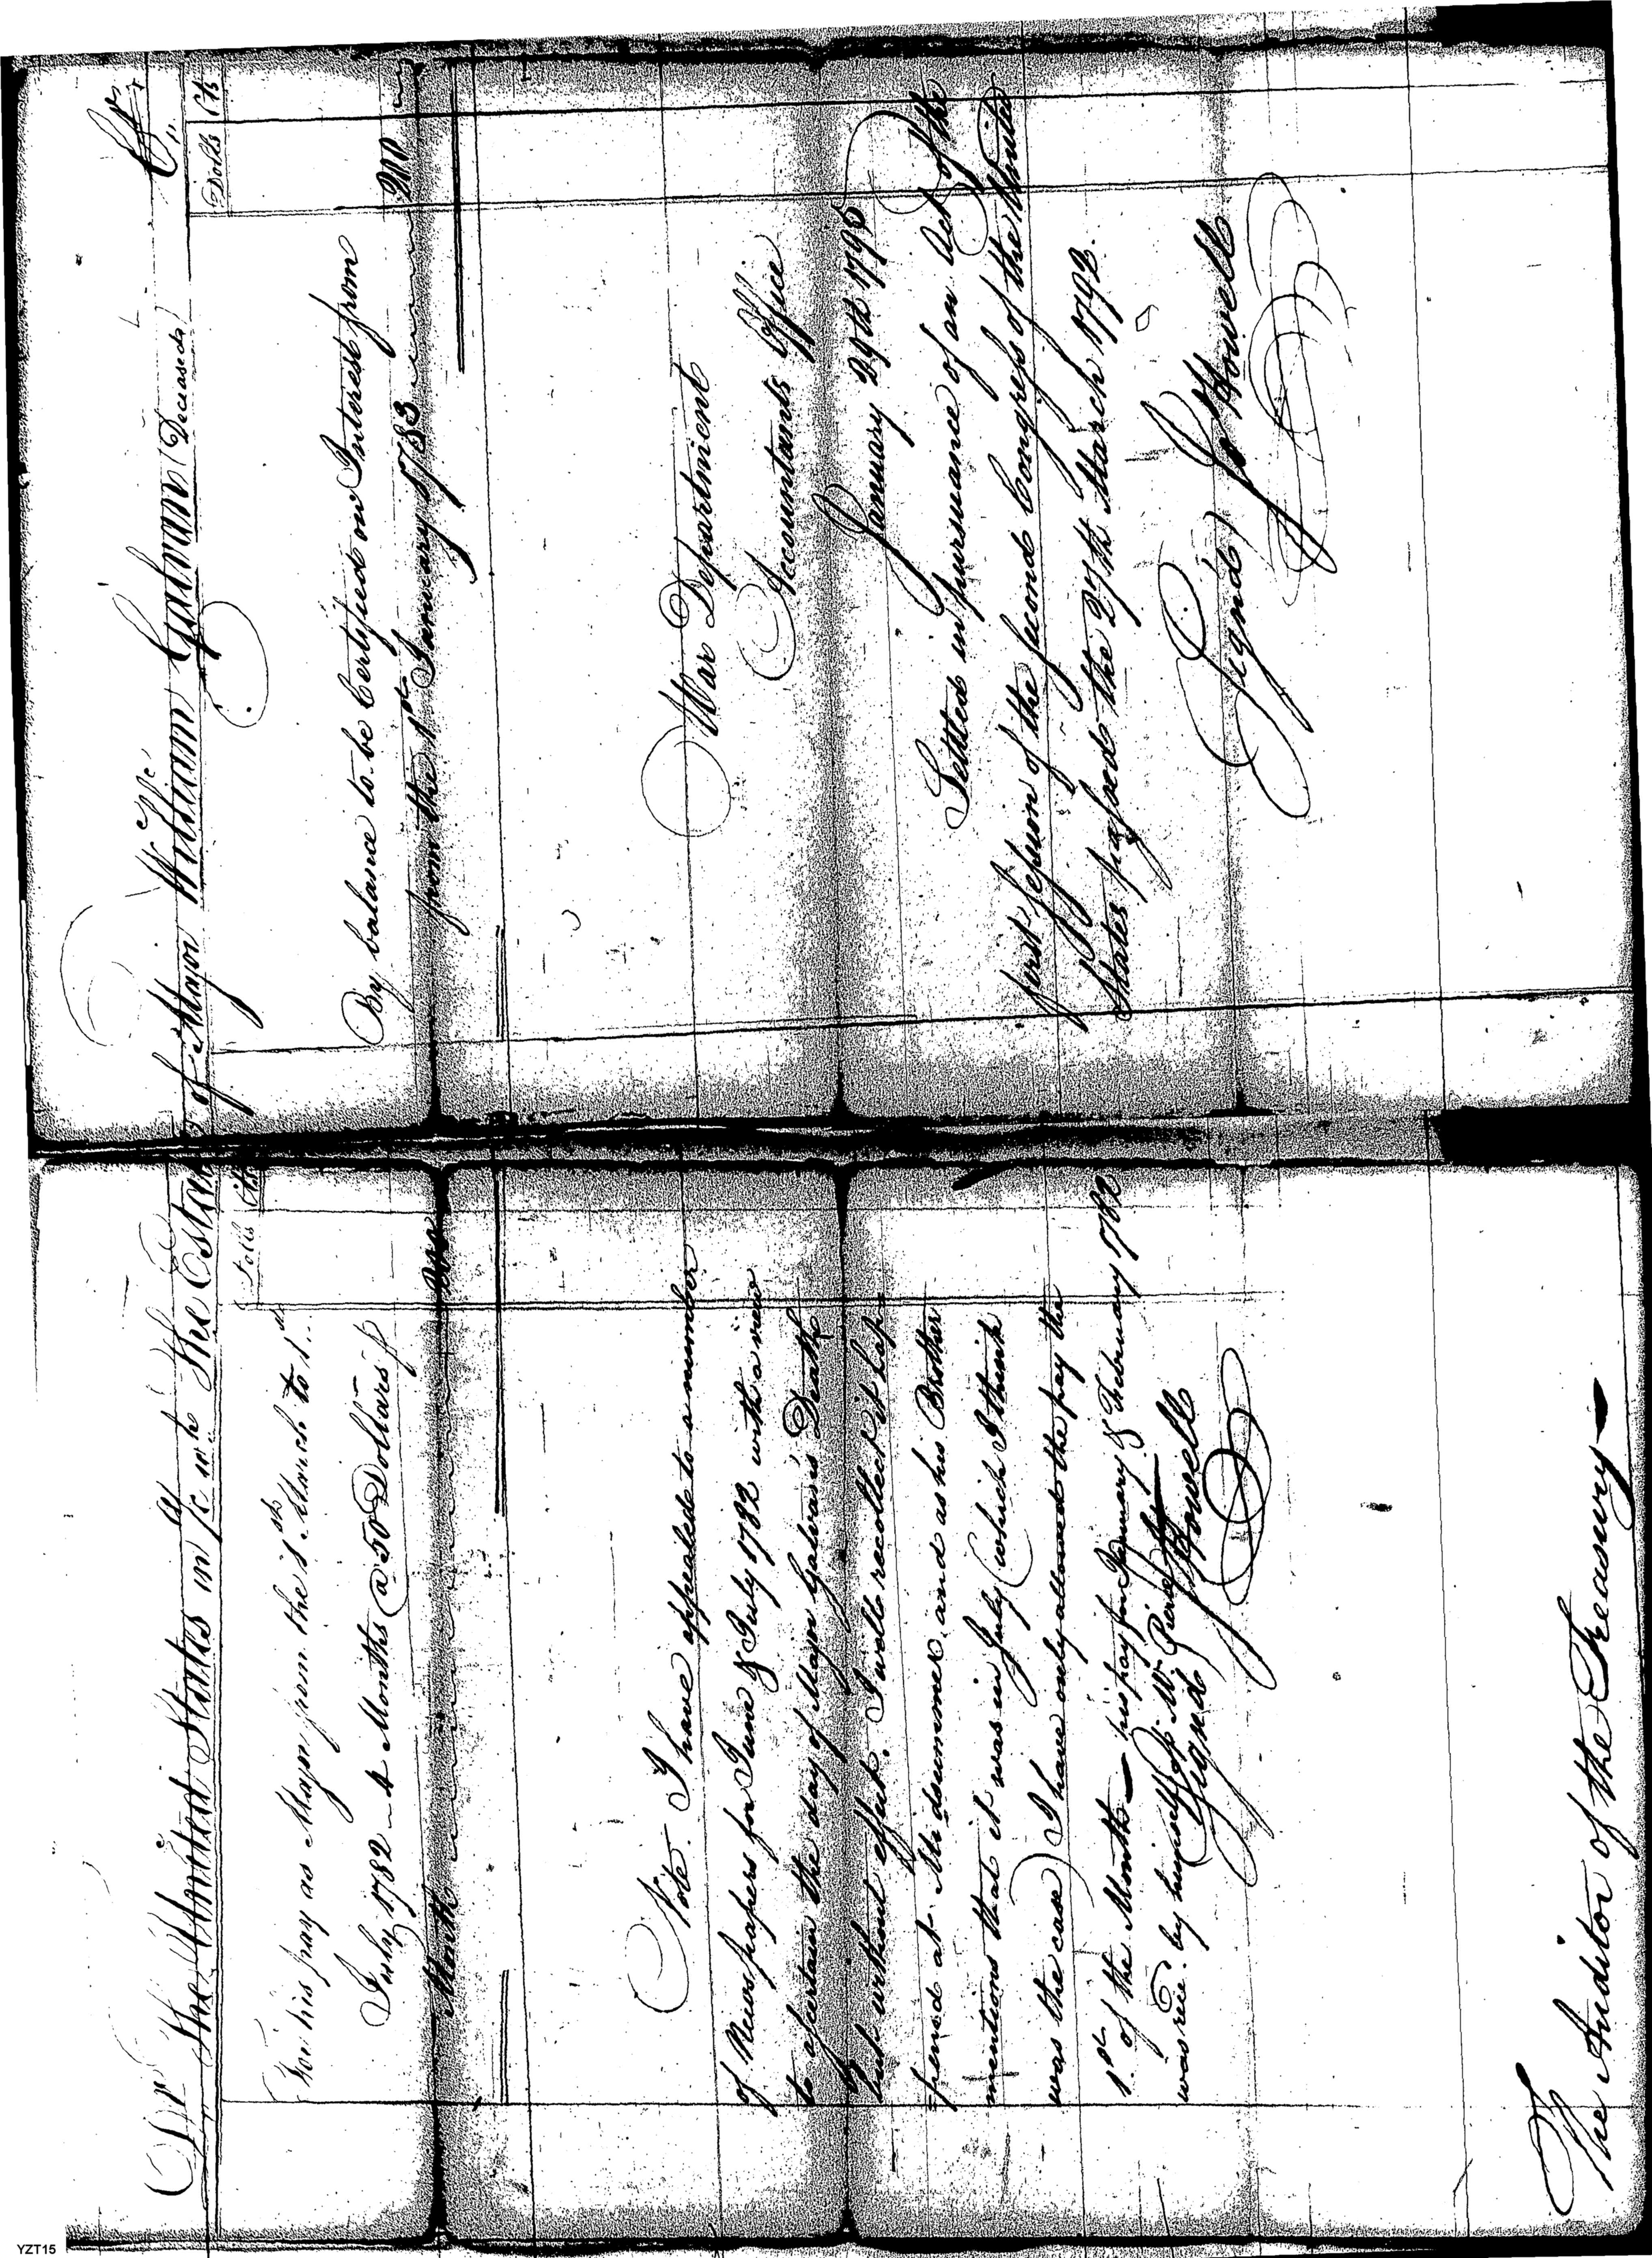 Dr The United States in /c with The Estate of Major William Galvan (Deceased) Cr
Dolls Cts
For his pay as Major from the 1st March to 1st
July 1782 – 4 Months @ 50 Dollars p
Month 200
Note. I have appealed to a number
of News papers for June & July 1782 with a view
to assertain the day of Major Galvan's Death
but without effect. I well recollect it hap-
-pened at Midsummer, and as his Brother
mentions that it was in July (which I think
was the case) I have only allowed the pay the
1st of the Month — his pay for January & February 1782
was rece'd by himself of
Signed Howell
The Auditor of the Treasury —
Dolls Cts
By balance to be Certified on Interest from
from the 1st January 1783 200
War Department
Accountants Office
January 29th 1795
Settled in pursuance of an Act of the
first session of the second Congress of the United
States passed the 27th March 1792.
(Signed) Jo Howell
YZT15